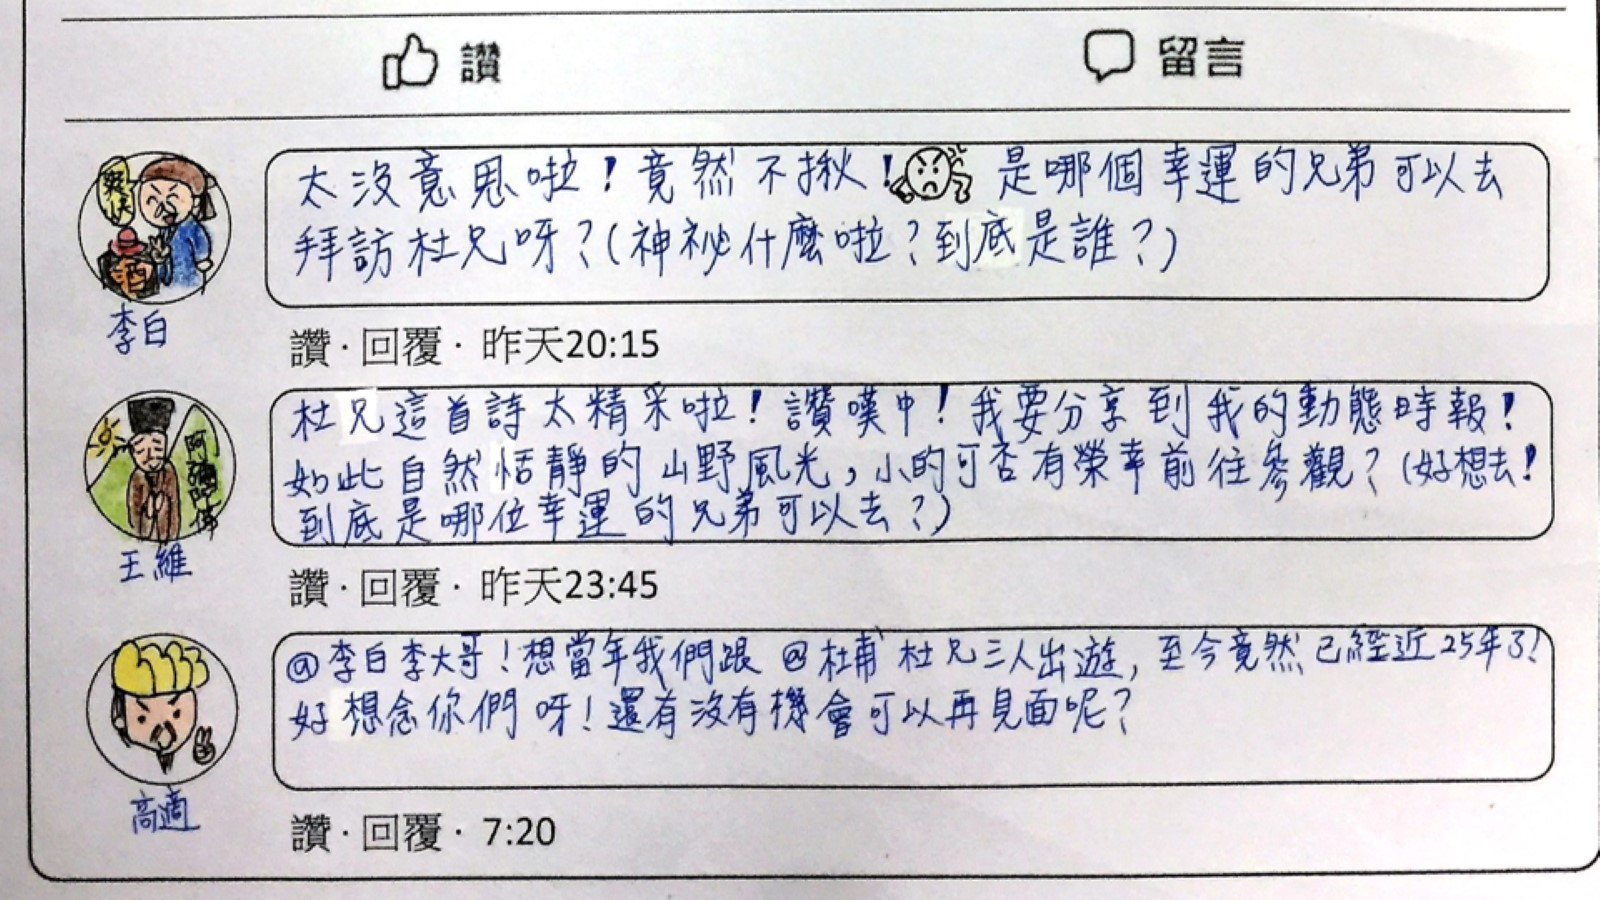 讚 留言
太沒意思啦！竟然不揪！是哪個幸運的兄弟可以去
拜訪杜兄呀？(神祕什麼啦？到底是誰？)
酒
李白
讚 · 回覆 · 昨天20:15
杜兄這首詩太精采啦！讚嘆中！我要分享到我的動態時報！
如此自然恬靜的山野風光，小的可否有榮幸前往參觀？(好想去！
到底是哪位幸運的兄弟可以去？)
阿彌陀佛
王維
讚 · 回覆 · 昨天23:45
@李白李大哥！想當年我們跟 @杜甫 杜兄三人出遊，至今竟然已經近25年了！
好想念你們呀！還有沒有機會可以再見面呢？
高適
讚 · 回覆 · 7:20